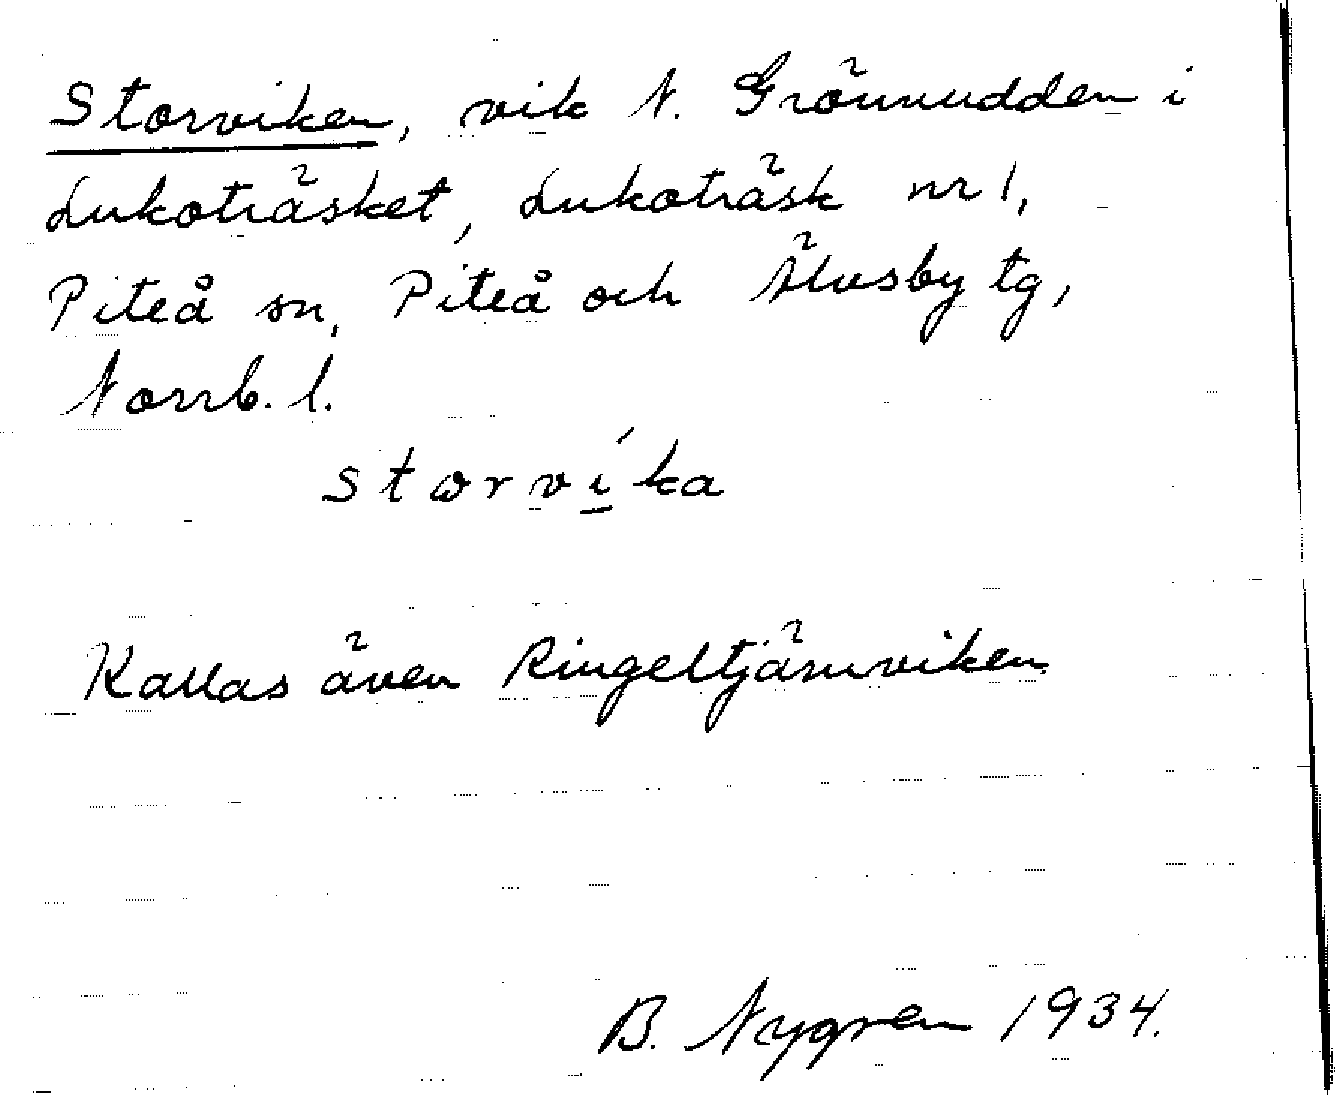 Storviken, vik N. Grönnudden i
Lukoträsket, Lukoträsk nr 1,
Piteå sn, Piteå och Älvsby tg,
Norrb. l.
storví̱ka
Kallas även Ringeltjärnviken
B. Nygren 1934.